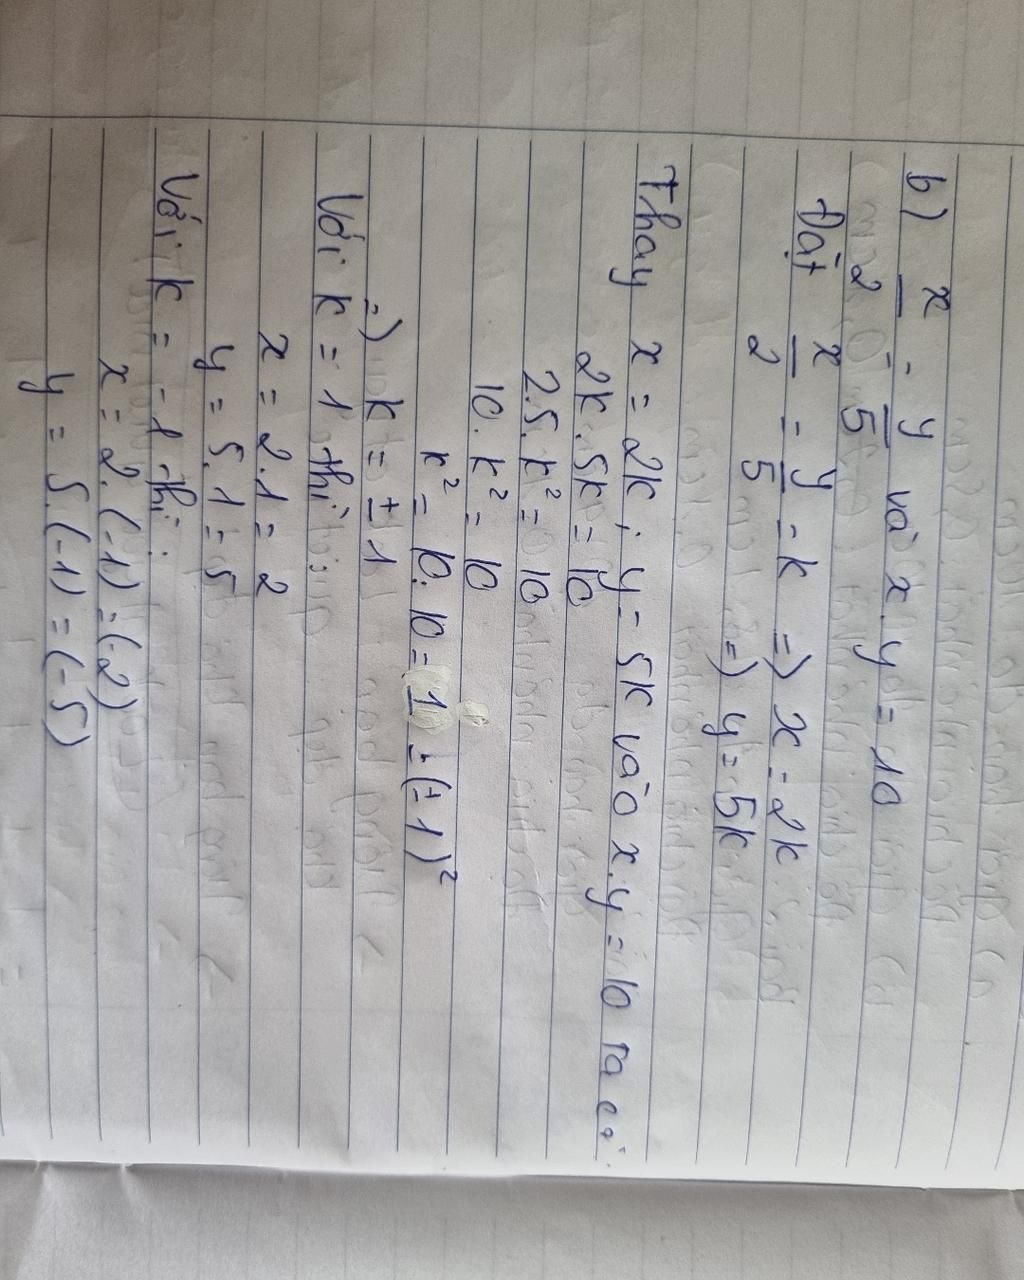 b) x/2 = y/5 và x.y = 10
Đặt x/2 = y/5 = k => x = 2k
=> y = 5k
Thay x = 2k ; y = 5k vào x.y = 10 ta có.
2k.5k = 10
2.5.k² = 10
10.k² = 10
k² = 10:10 = 1 = (±1)²
=) k = ±1
Với k = 1 thì :
x = 2.1 = 2
y = 5.1 = 5
Với k = -1 thì :
x = 2.(-1) = (-2)
y = 5.(-1) = (-5)